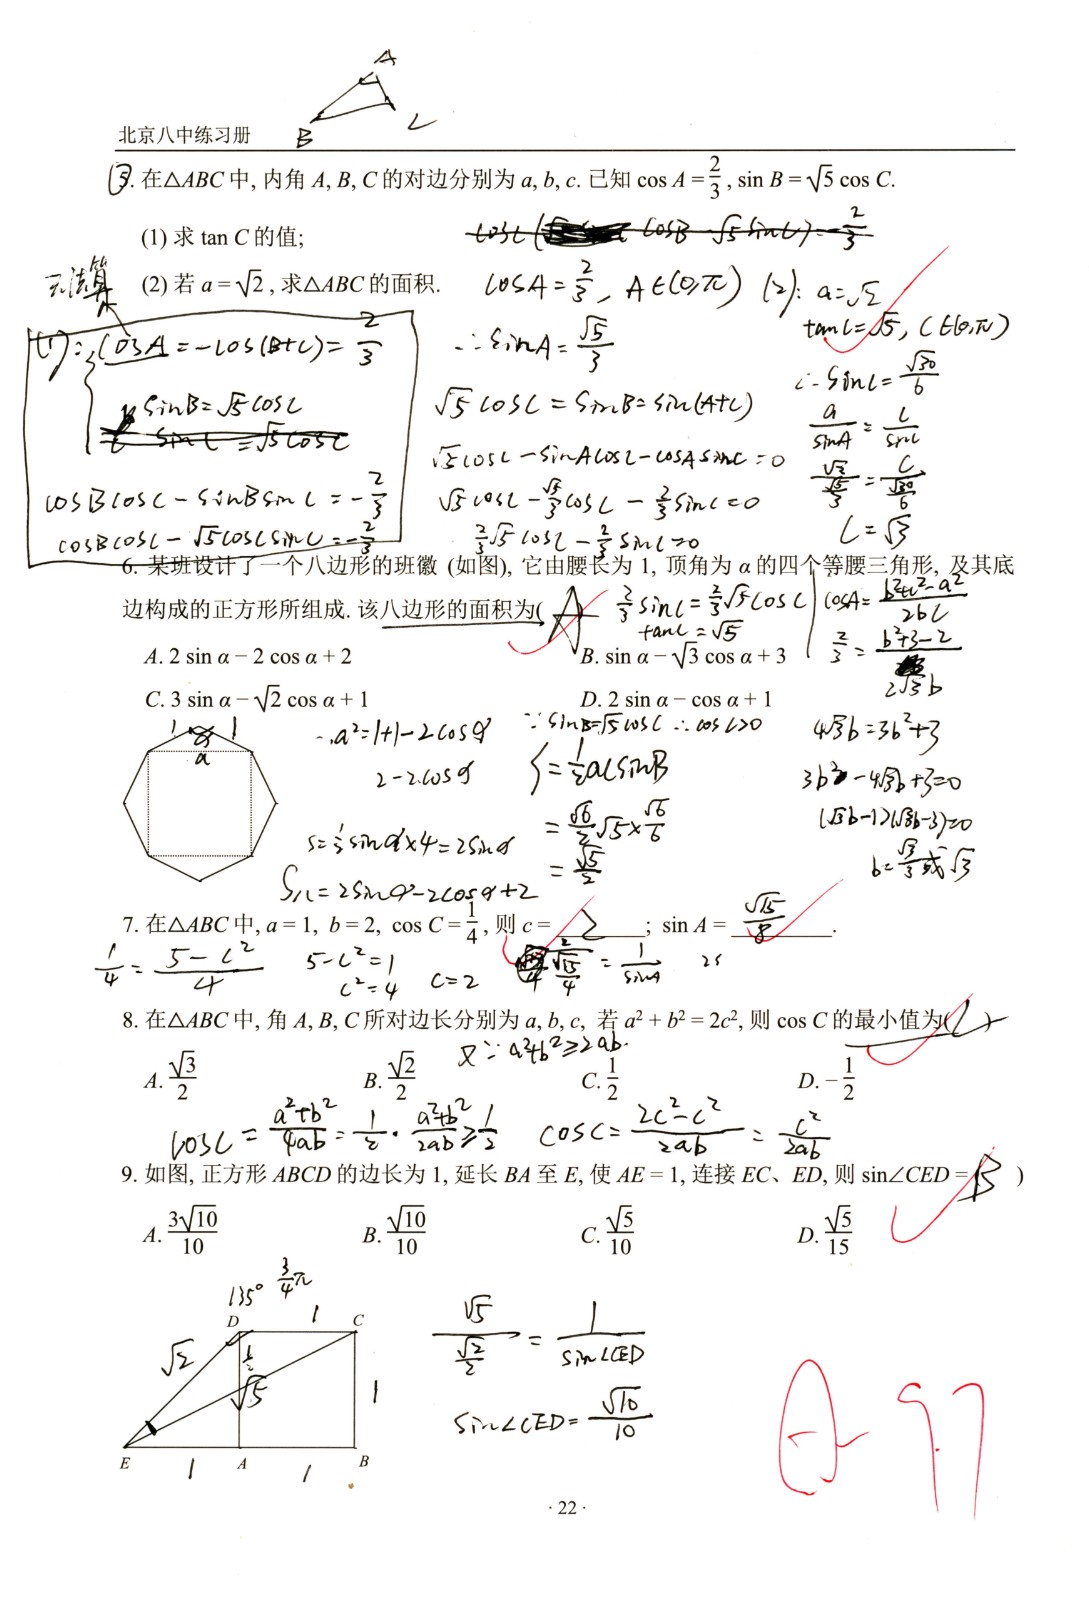 A
B
C
北京八中练习册
5. 在△ABC 中, 内角 A, B, C 的对边分别为 a, b, c. 已知 cos A = 2/3, sin B = √5 cos C.
(1) 求 tan C 的值;
(2) 若 a = √2, 求△ABC 的面积.
无法算
(1): cosA = -cos(B+C) = 2/3
sinB = √5 cosC
cosBcosC - sinBsinC = -2/3
cosBcosC - √5cosCsinC = -2/3
cosA = 2/3, A∈(0,π)
∴ sinA = √5/3
√5 cosC = sinB = sin(A+C)
√5cosC - sinAcosC - cosAsinC = 0
√5cosC - √5/3 cosC - 2/3 sinC = 0
2/3 √5 cosC - 2/3 sinC = 0
2/3 sinC = 2/3 √5 cosC
tanC = √5
(2): a = √2
tanC = √5, C∈(0,π)
∴ sinC = √30/6
a/sinA = c/sinC
√2/(√5/3) = c/(√30/6)
c = √3
cosA = (b²+c²-a²)/2bc
2/3 = (b²+3-2)/2√3b
4√3b = 3b²+3
3b² - 4√3b + 3 = 0
(√3b-1)(√3b-3) = 0
b = √3/3 或 √3
∵ sinB = √5cosC ∴ cosC>0
S = 1/2 acsinB
= √6/2 √5 × √6/6
= √5/2
6. 某班设计了一个八边形的班徽 (如图), 它由腰长为 1, 顶角为 α 的四个等腰三角形, 及其底
边构成的正方形所组成. 该八边形的面积为( A )
A. 2 sin α - 2 cos α + 2
B. sin α - √3 cos α + 3
C. 3 sin α - √2 cos α + 1
D. 2 sin α - cos α + 1
1 α 1
a
∴ a² = 1+1-2cosα
2-2cosα
S = 1/2 sinα×4 = 2sinα
S八 = 2sinα-2cosα+2
7. 在△ABC 中, a = 1, b = 2, cos C = 1/4, 则 c = 2 ; sin A = √15/8 .
1/4 = (5-c²)/4
5-c² = 1
c² = 4
c = 2
2/(√15/4) = 1/sinA
8. 在△ABC 中, 角 A, B, C 所对边长分别为 a, b, c, 若 a² + b² = 2c², 则 cos C 的最小值为( C )
又∵ a²+b² ≥ 2ab.
A. √3/2
B. √2/2
C. 1/2
D. -1/2
cosC = (a²+b²)/4ab = 1/2 · (a²+b²)/2ab ≥ 1/2
cosC = (2c²-c²)/2ab = c²/2ab
9. 如图, 正方形 ABCD 的边长为 1, 延长 BA 至 E, 使 AE = 1, 连接 EC、ED, 则 sin∠CED = B )
A. 3√10/10
B. √10/10
C. √5/10
D. √5/15
135° 3/4π
D 1 C
√2
√5
1
E 1 A 1 B
√5/(√2/2) = 1/sin∠CED
sin∠CED = √10/10
A- 9.7
· 22 ·